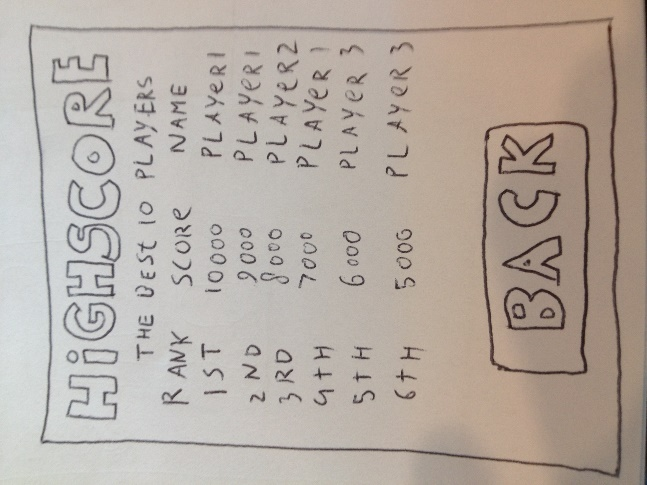 HiGHSCORE
THE BEST 10 PLAYERS
RANK SCORE NAME
1ST 10000 PLAYER1
2ND 9000 PLAYER1
3RD 8000 PLAYER2
4tH 7000 PLAYER 1
5tH 6000 PLAYER 3
6tH 5000 PLAYER 3
BACK